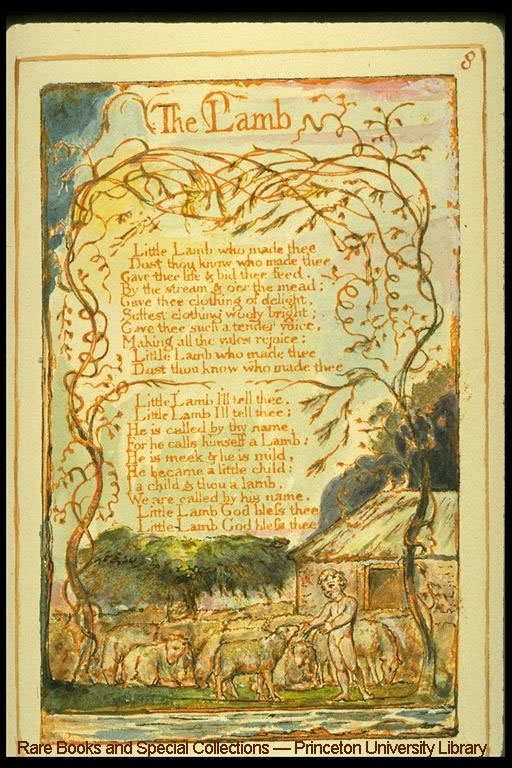 8
The Lamb
Little Lamb who made thee
Dost thou know who made thee
Gave thee life & bid thee feed.
By the stream & oer the mead;
Gave thee clothing of delight,
Softest clothing wooly bright;
Gave thee such a tender voice,
Making all the vales rejoice:
Little Lamb who made thee
Dost thou know who made thee
Little Lamb I'll tell thee,
Little Lamb I'll tell thee;
He is called by thy name,
For he calls himself a Lamb:
He is meek & he is mild,
He became a little child:
I a child & thou a lamb,
We are called by his name.
Little Lamb God bleſs thee
Little Lamb God bleſs thee
Rare Books and Special Collections — Princeton University Library